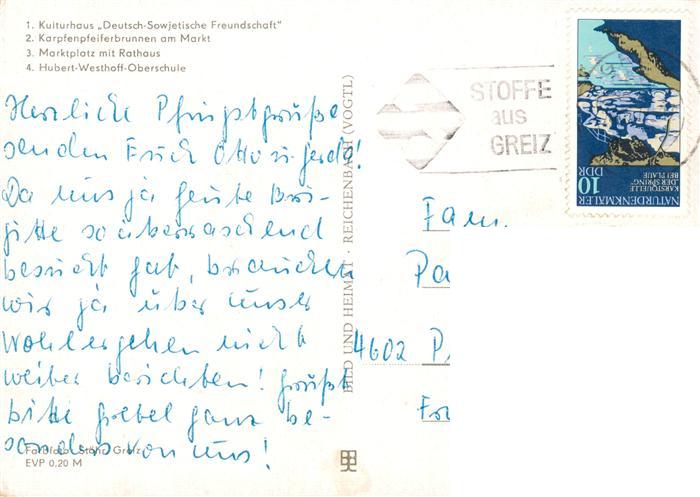 1. Kulturhaus „Deutsch-Sowjetische Freundschaft"
2. Karpfenpfeiferbrunnen am Markt
3. Marktplatz mit Rathaus
4. Hubert-Westhoff-Oberschule
Herzliche Pfingstgrüße
senden Euch Otto u. Gerda!
Da uns ja heute Bri-
gitte so überraschend
besucht hat, brauchen
wir ja über unser
Wohlergehen nicht
weiter berichten! Grüßt
bitte ganz be-
sonders von uns!
Farbfoto: Stöhr, Greiz
EVP 0,20 M
BILD UND HEIMAT · REICHENBACH (VOGTL)
STOFFE
aus
GREIZ
10
DDR
NATURDENKMALER
KARSTQUELLE
„DER SPRING"
BEI PLAUE
Fam.
Pa
4602 P